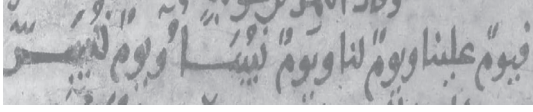 فيومٌ علينا ويومٌ لنا ويومٌ نُسَاءُ ويومٌ نُسَرّ